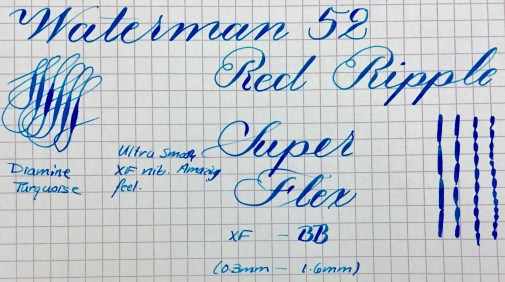 Waterman 52
Red Ripple
Super
Flex
Diamine
Turquoise
Ultra Smooth
XF nib. Amazing
feel.
XF - BB
(0.3mm - 1.6mm)